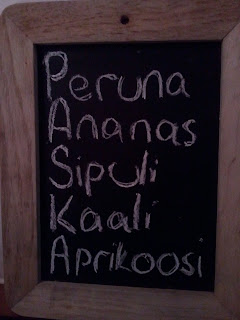 Peruna
Ananas
Sipuli
Kaali
Aprikoosi